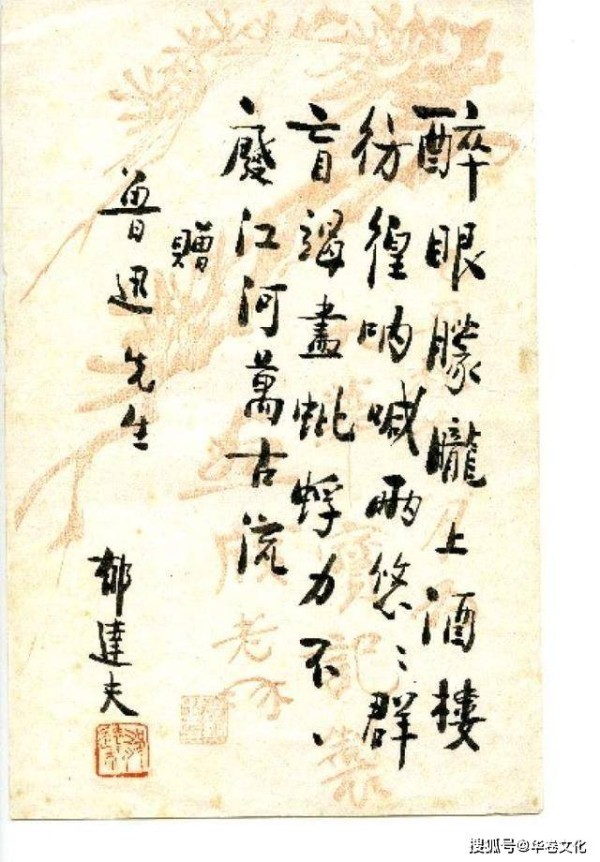 醉眼朦朧上酒樓
彷徨吶喊兩悠〻群
盲竭盡蚍蜉力不、
廢江河萬古流
贈
魯迅先生
郁達夫
搜狐号@华卷文化